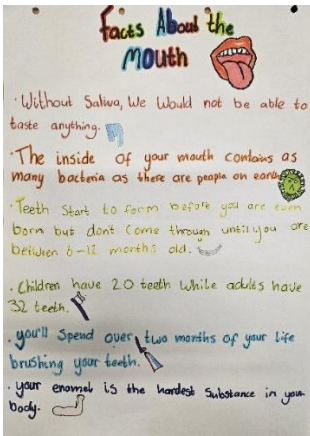 Facts About the
Mouth
· Without Saliva, We Would not be able to
taste anything.
· The inside of your mouth contains as
many bacteria as there are people on earth.
· Teeth Start to form before you are even
born but dont come through until you are
between 6-12 months old.
· Children have 20 teeth while adults have
32 teeth.
· you'll Spend over two months of your life
brushing your teeth.
· your enamel is the hardest Substance in your
body.